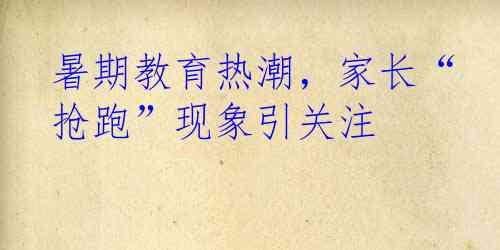 暑期教育热潮，家长“
抢跑”现象引关注